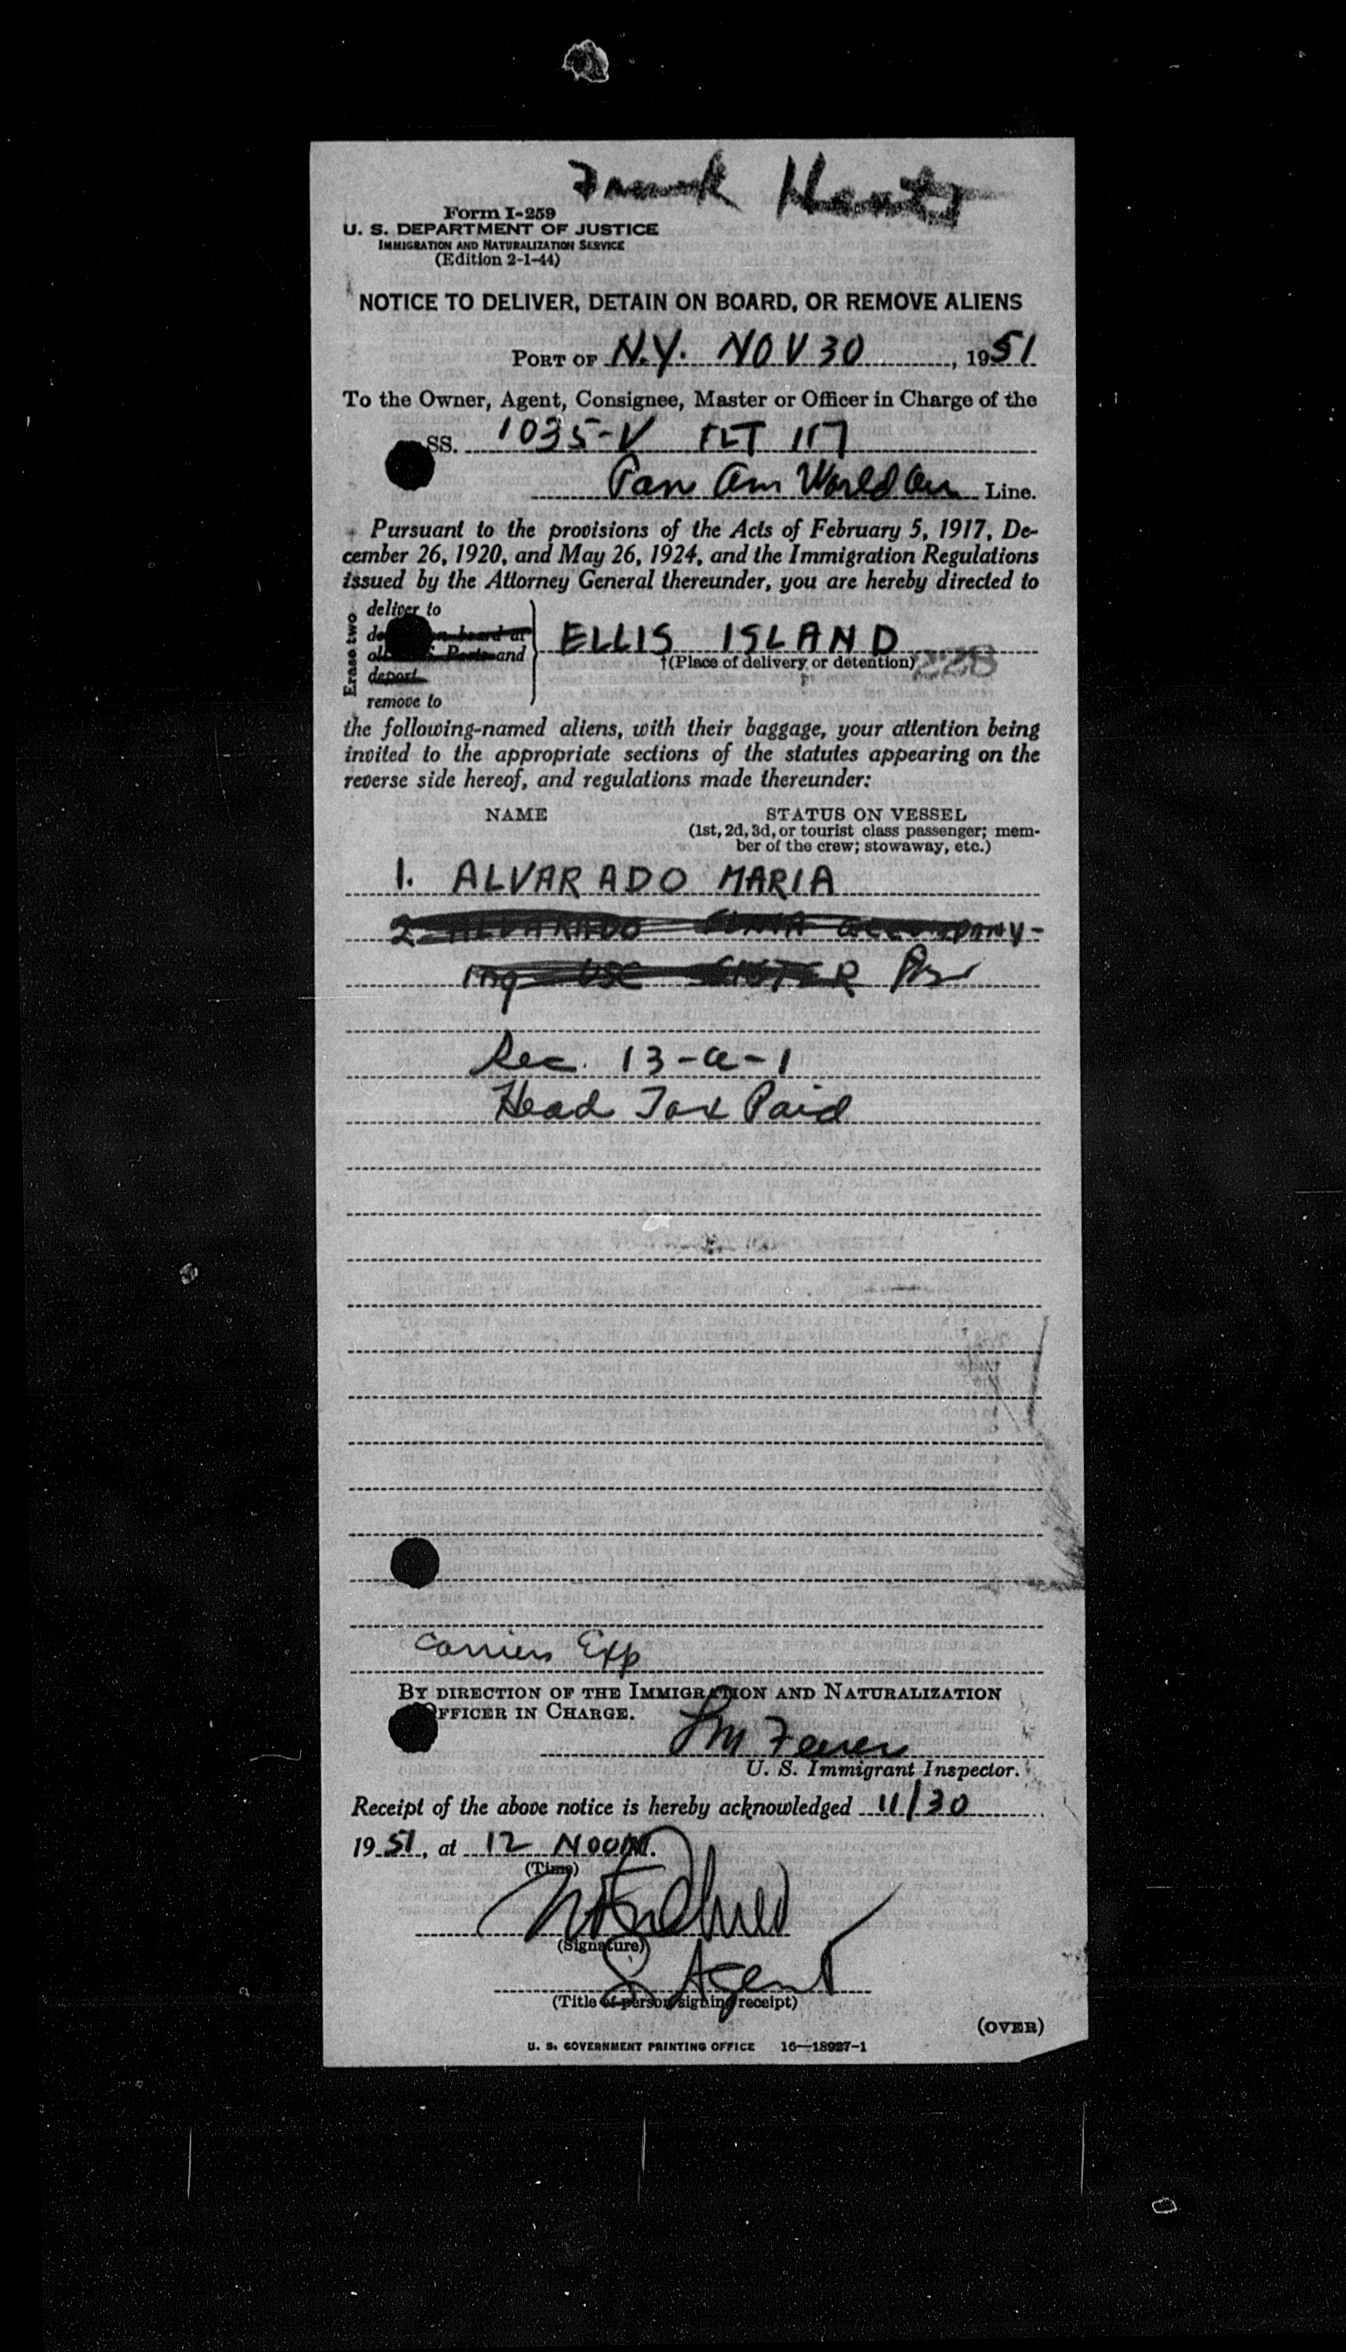 Frank
Form I-259
U. S. DEPARTMENT OF JUSTICE
IMMIGRATION AND NATURALIZATION SERVICE
(Edition 2-1-44)
NOTICE TO DELIVER, DETAIN ON BOARD, OR REMOVE ALIENS
PORT OF N.Y. NOV 30, 1951
To the Owner, Agent, Consignee, Master or Officer in Charge of the
SS. 1035-V FLT 117
Pan Am World Air Line.
Pursuant to the provisions of the Acts of February 5, 1917, De-
cember 26, 1920, and May 26, 1924, and the Immigration Regulations
issued by the Attorney General thereunder, you are hereby directed to
Erase two
deliver to
on board at
and
deport
remove to
ELLIS ISLAND
†(Place of delivery or detention)
228
the following-named aliens, with their baggage, your attention being
invited to the appropriate sections of the statutes appearing on the
reverse side hereof, and regulations made thereunder:
NAME STATUS ON VESSEL
(1st, 2d, 3d, or tourist class passenger; mem-
ber of the crew; stowaway, etc.)
1. ALVARADO MARIA
2 ALVARADO accompany-
ing USC SISTER
Sec. 13-a-1
Head Tax Paid
Carriers Exp
BY DIRECTION OF THE IMMIGRATION AND NATURALIZATION
OFFICER IN CHARGE.
U. S. Immigrant Inspector.
Receipt of the above notice is hereby acknowledged 11/30
1951, at 12 NOON.
(Time)
(Signature)
Agent
(Title of person signing receipt)
(OVER)
U. S. GOVERNMENT PRINTING OFFICE 16—18927-1